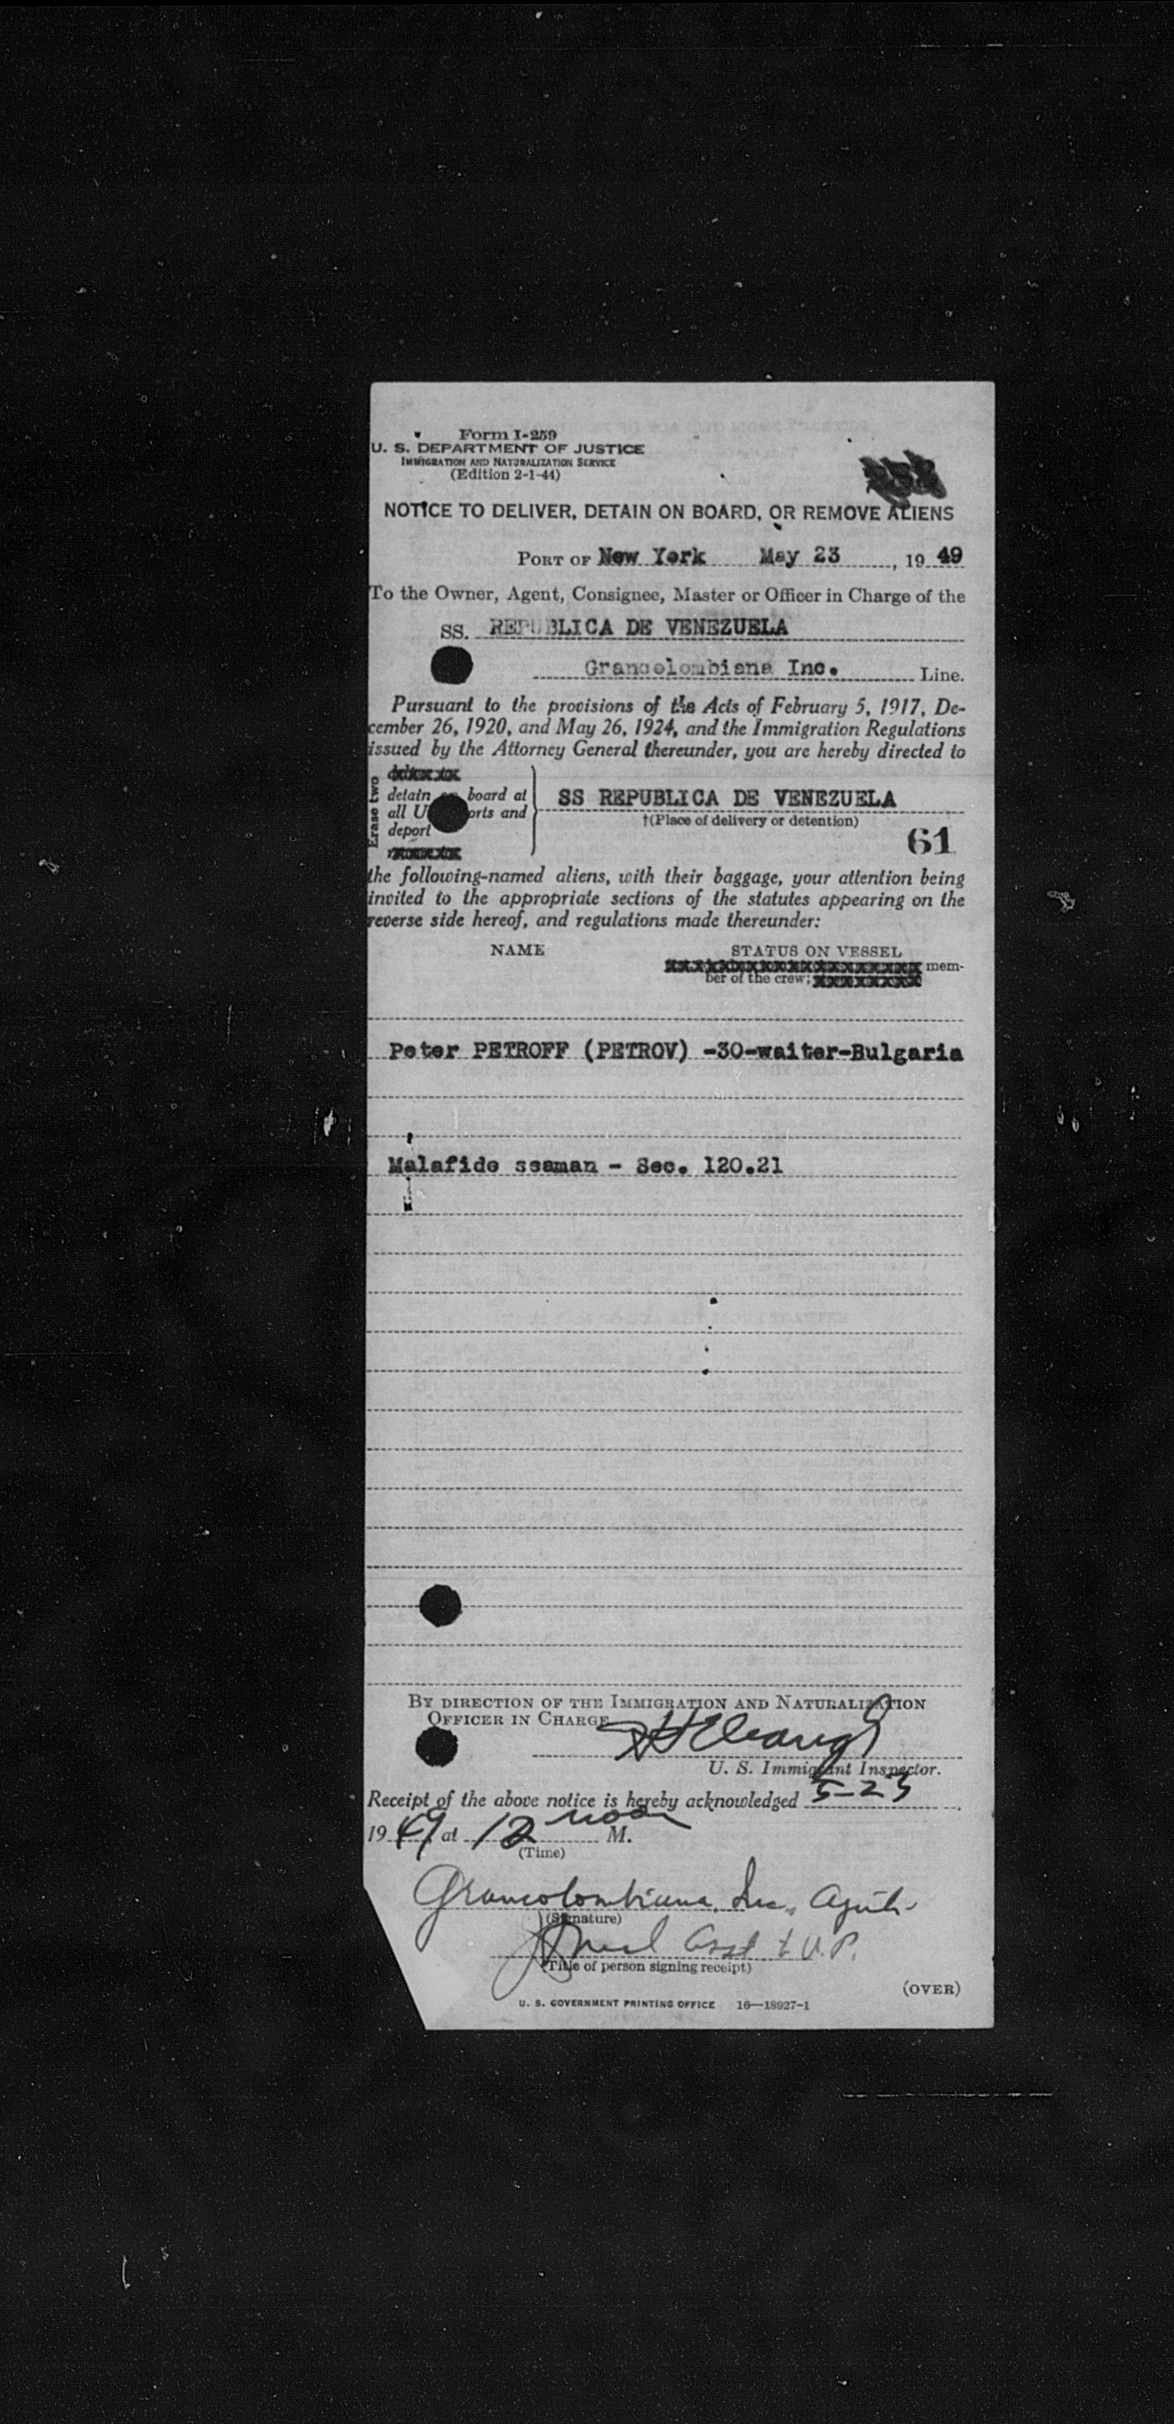 Form I-259
U. S. DEPARTMENT OF JUSTICE
IMMIGRATION AND NATURALIZATION SERVICE
(Edition 2-1-44)
NOTICE TO DELIVER, DETAIN ON BOARD, OR REMOVE ALIENS
PORT OF New York May 23, 1949
To the Owner, Agent, Consignee, Master or Officer in Charge of the
SS. REPUBLICA DE VENEZUELA
Grancolombiana Inc. Line.
Pursuant to the provisions of the Acts of February 5, 1917, De-
cember 26, 1920, and May 26, 1924, and the Immigration Regulations
issued by the Attorney General thereunder, you are hereby directed to
Erase two
detain on board at
all U orts and
deport
SS REPUBLICA DE VENEZUELA
†(Place of delivery or detention)
61
the following-named aliens, with their baggage, your attention being
invited to the appropriate sections of the statutes appearing on the
reverse side hereof, and regulations made thereunder:
NAME STATUS ON VESSEL
mem-
ber of the crew;
Peter PETROFF (PETROV) -30-waiter-Bulgaria
Malafide seaman - Sec. 120.21
BY DIRECTION OF THE IMMIGRATION AND NATURALIZATION
OFFICER IN CHARGE
U. S. Immigrant Inspector.
Receipt of the above notice is hereby acknowledged 5-23
1949 at 12 noon M.
(Time)
Grancolombiana, Inc., Agents
(Signature)
Asst V.P.
(Title of person signing receipt)
(OVER)
U. S. GOVERNMENT PRINTING OFFICE 16—18927-1